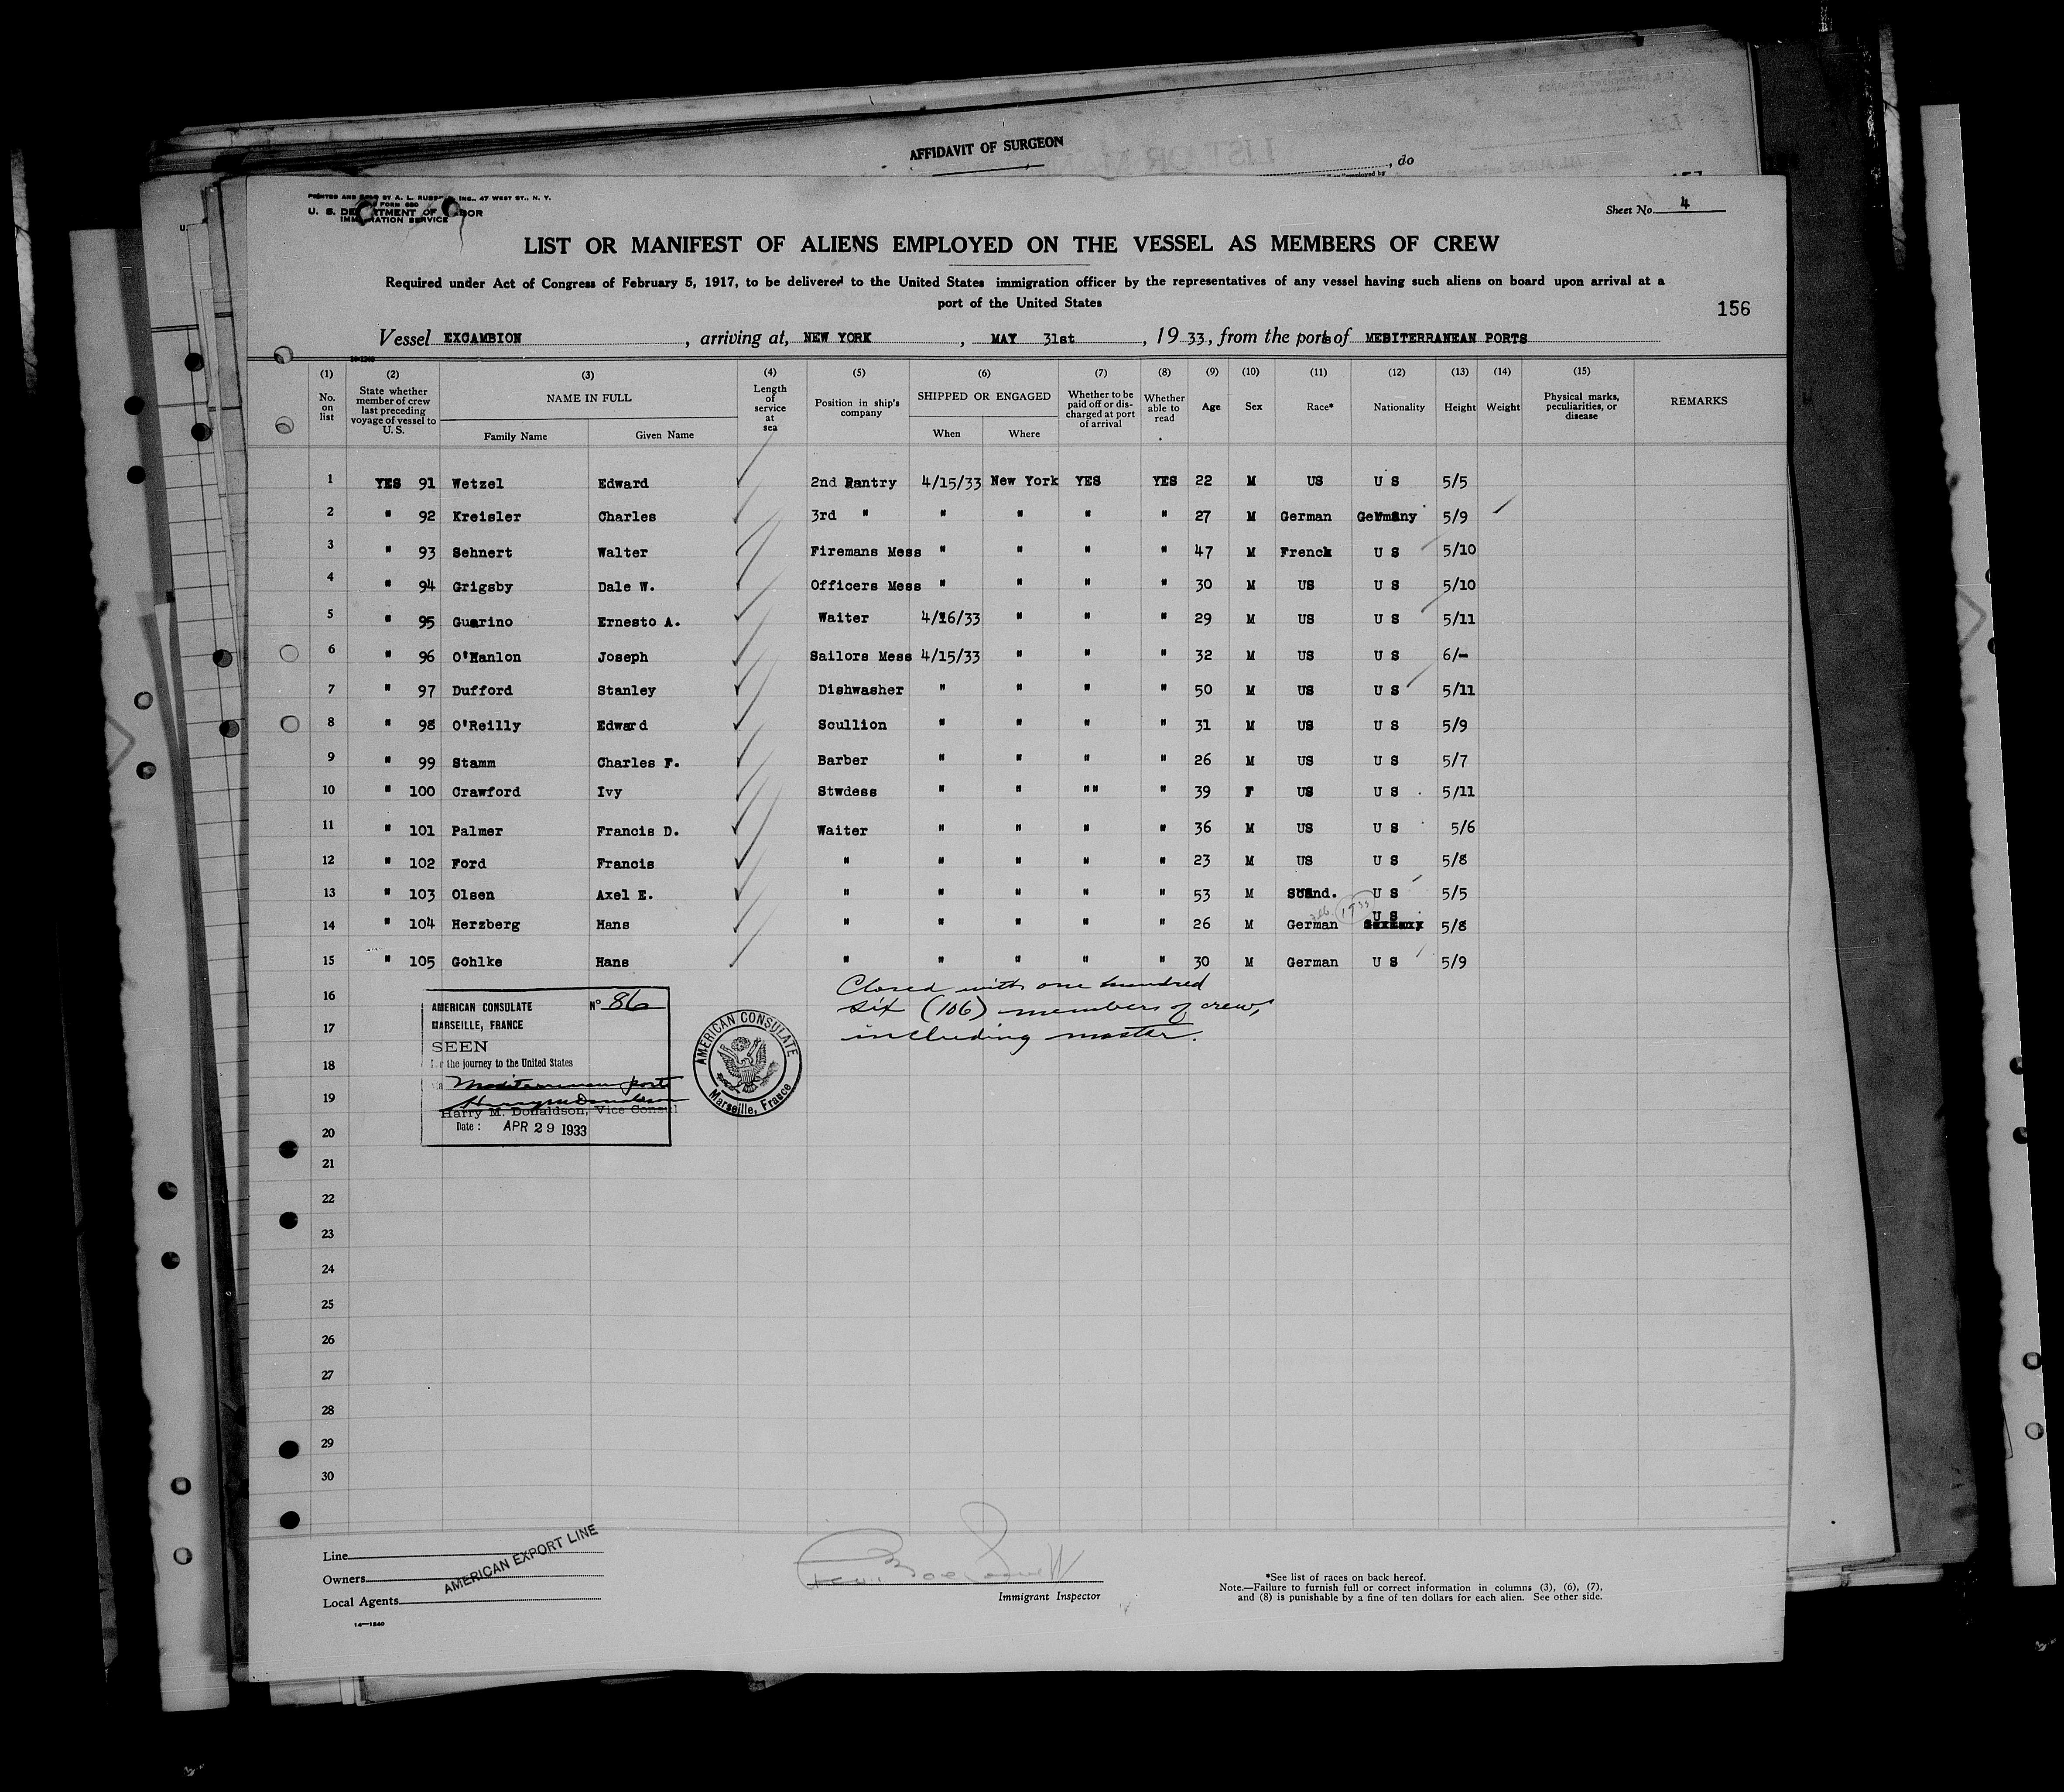 AFFIDAVIT OF SURGEON
, do
PRINTED AND SOLD BY A. L. INC., 47 WEST ST., N. Y.
FORM 680
U. S. DEPARTMENT OF LABOR
IMMIGRATION SERVICE
Sheet No. 4
LIST OR MANIFEST OF ALIENS EMPLOYED ON THE VESSEL AS MEMBERS OF CREW
Required under Act of Congress of February 5, 1917, to be delivered to the United States immigration officer by the representatives of any vessel having such aliens on board upon arrival at a
port of the United States
156
Vessel EXCAMBION, arriving at, NEW YORK, MAY 31st, 1933, from the ports of MEDITERRANEAN PORTS
(1) (2) (3) (4) (5) (6) (7) (8) (9) (10) (11) (12) (13) (14) (15)
No. on list State whether member of crew last preceding voyage of vessel to U. S. NAME IN FULL Family Name Given Name Length of service at sea Position in ship's company SHIPPED OR ENGAGED When Where Whether to be paid off or discharged at port of arrival Whether able to read Age Sex Race* Nationality Height Weight Physical marks, peculiarities, or disease REMARKS
1 YES 91 Wetzel Edward 2nd Pantry 4/15/33 New York YES YES 22 M US U S 5/5
2 " 92 Kreisler Charles 3rd " " " " " 27 M German Germany 5/9
3 " 93 Sehnert Walter Firemans Mess " " " " 47 M French U S 5/10
4 " 94 Grigsby Dale W. Officers Mess " " " " 30 M US U S 5/10
5 " 95 Guarino Ernesto A. Waiter 4/16/33 " " " 29 M US U S 5/11
6 " 96 O'Hanlon Joseph Sailors Mess 4/15/33 " " " 32 M US U S 6/-
7 " 97 Dufford Stanley Dishwasher " " " " 50 M US U S 5/11
8 " 98 O'Reilly Edward Scullion " " " " 31 M US U S 5/9
9 " 99 Stamm Charles F. Barber " " " " 26 M US U S 5/7
10 " 100 Crawford Ivy Stwdess " " "" " 39 F US U S 5/11
11 " 101 Palmer Francis D. Waiter " " " " 36 M US U S 5/6
12 " 102 Ford Francis " " " " " 23 M US U S 5/8
13 " 103 Olsen Axel E. " " " " " 53 M Scand. U S 5/5
14 " 104 Herzberg Hans " " " " " 26 M German U S 5/8
15 " 105 Gohlke Hans " " " " " 30 M German U S 5/9
16
17
18
19
20
21
22
23
24
25
26
27
28
29
30
Closed with one hundred
six (106) members of crew,
including master.
AMERICAN CONSULATE Nº 86
MARSEILLE, FRANCE
SEEN
for the journey to the United States
via Mediterranean ports
Harry M. Donaldson
Harry M. Donaldson, Vice Consul
Date: APR 29 1933
AMERICAN CONSULATE
Marseille, France
Line
Owners
Local Agents
AMERICAN EXPORT LINE
14-1240
Immigrant Inspector
*See list of races on back hereof.
Note.—Failure to furnish full or correct information in columns (3), (6), (7),
and (8) is punishable by a fine of ten dollars for each alien. See other side.